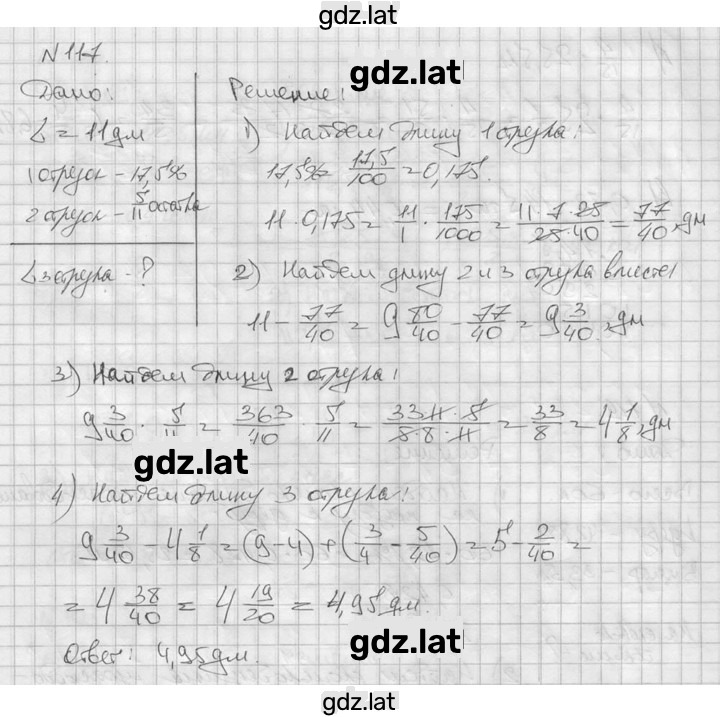 gdz.lat
N 117.
gdz.lat
Дано:
L = 11 дм
1 отрезок - 17,5%
2 отрезок - 5/11 остатка
L 3 отрезка - ?
Решение:
1) Найдем длину 1 отрезка:
17,5% = 17,5/100 = 0,175.
11 · 0,175 = 11/1 · 175/1000 = 11·7·25/25·40 = 77/40, дм
2) Найдем длину 2 и 3 отрезка вместе:
11 - 77/40 = 9 80/40 - 77/40 = 9 3/40, дм
3) Найдем длину 2 отрезка:
9 3/40 · 5/11 = 363/40 · 5/11 = 33·11·5/5·8·11 = 33/8 = 4 1/8, дм
gdz.lat
4) Найдем длину 3 отрезка:
9 3/40 - 4 1/8 = (9-4) + (3/4 - 5/40) = 5 - 2/40 =
= 4 38/40 = 4 19/20 = 4,95 дм.
gdz.lat
Ответ: 4,95 дм.
gdz.lat